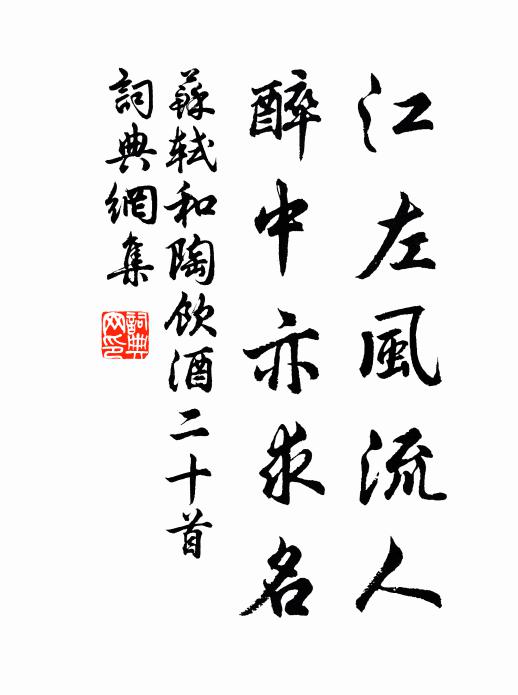 江左風流人
醉中亦求名
蘇軾和陶飲酒二十首
詞典網集
詞典網印